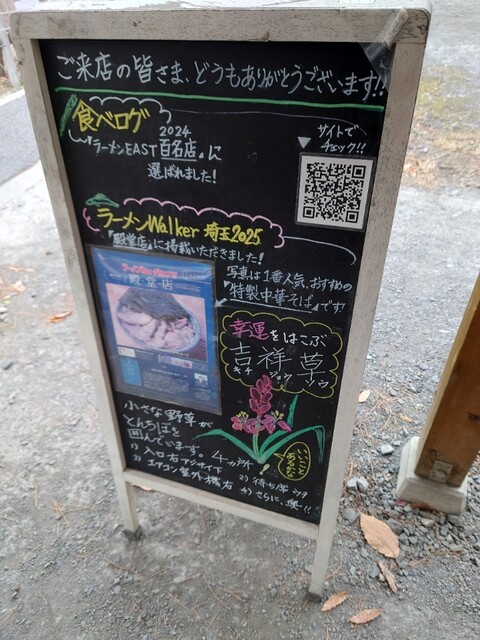 ご来店の皆さま、どうもありがとうございます!!
食べログ
2024
『ラーメンEAST百名店』に
選ばれました!
サイトで
チェック!!
ラーメンWalker 埼玉2025
『殿堂店』に掲載いただきました!
写真は1番人気、おすすめの
『特製中華そば』です!
殿堂店
幸運をはこぶ
吉祥草
キチ ジョウ ソウ
小さな野草が
とんちぼを
囲んでいます。4ヵ所
1) 入口右アジサイ下
2) 待ち席ウラ
3) エアコン室外機右
4) さらに、奥!!
いいこと
あるかも